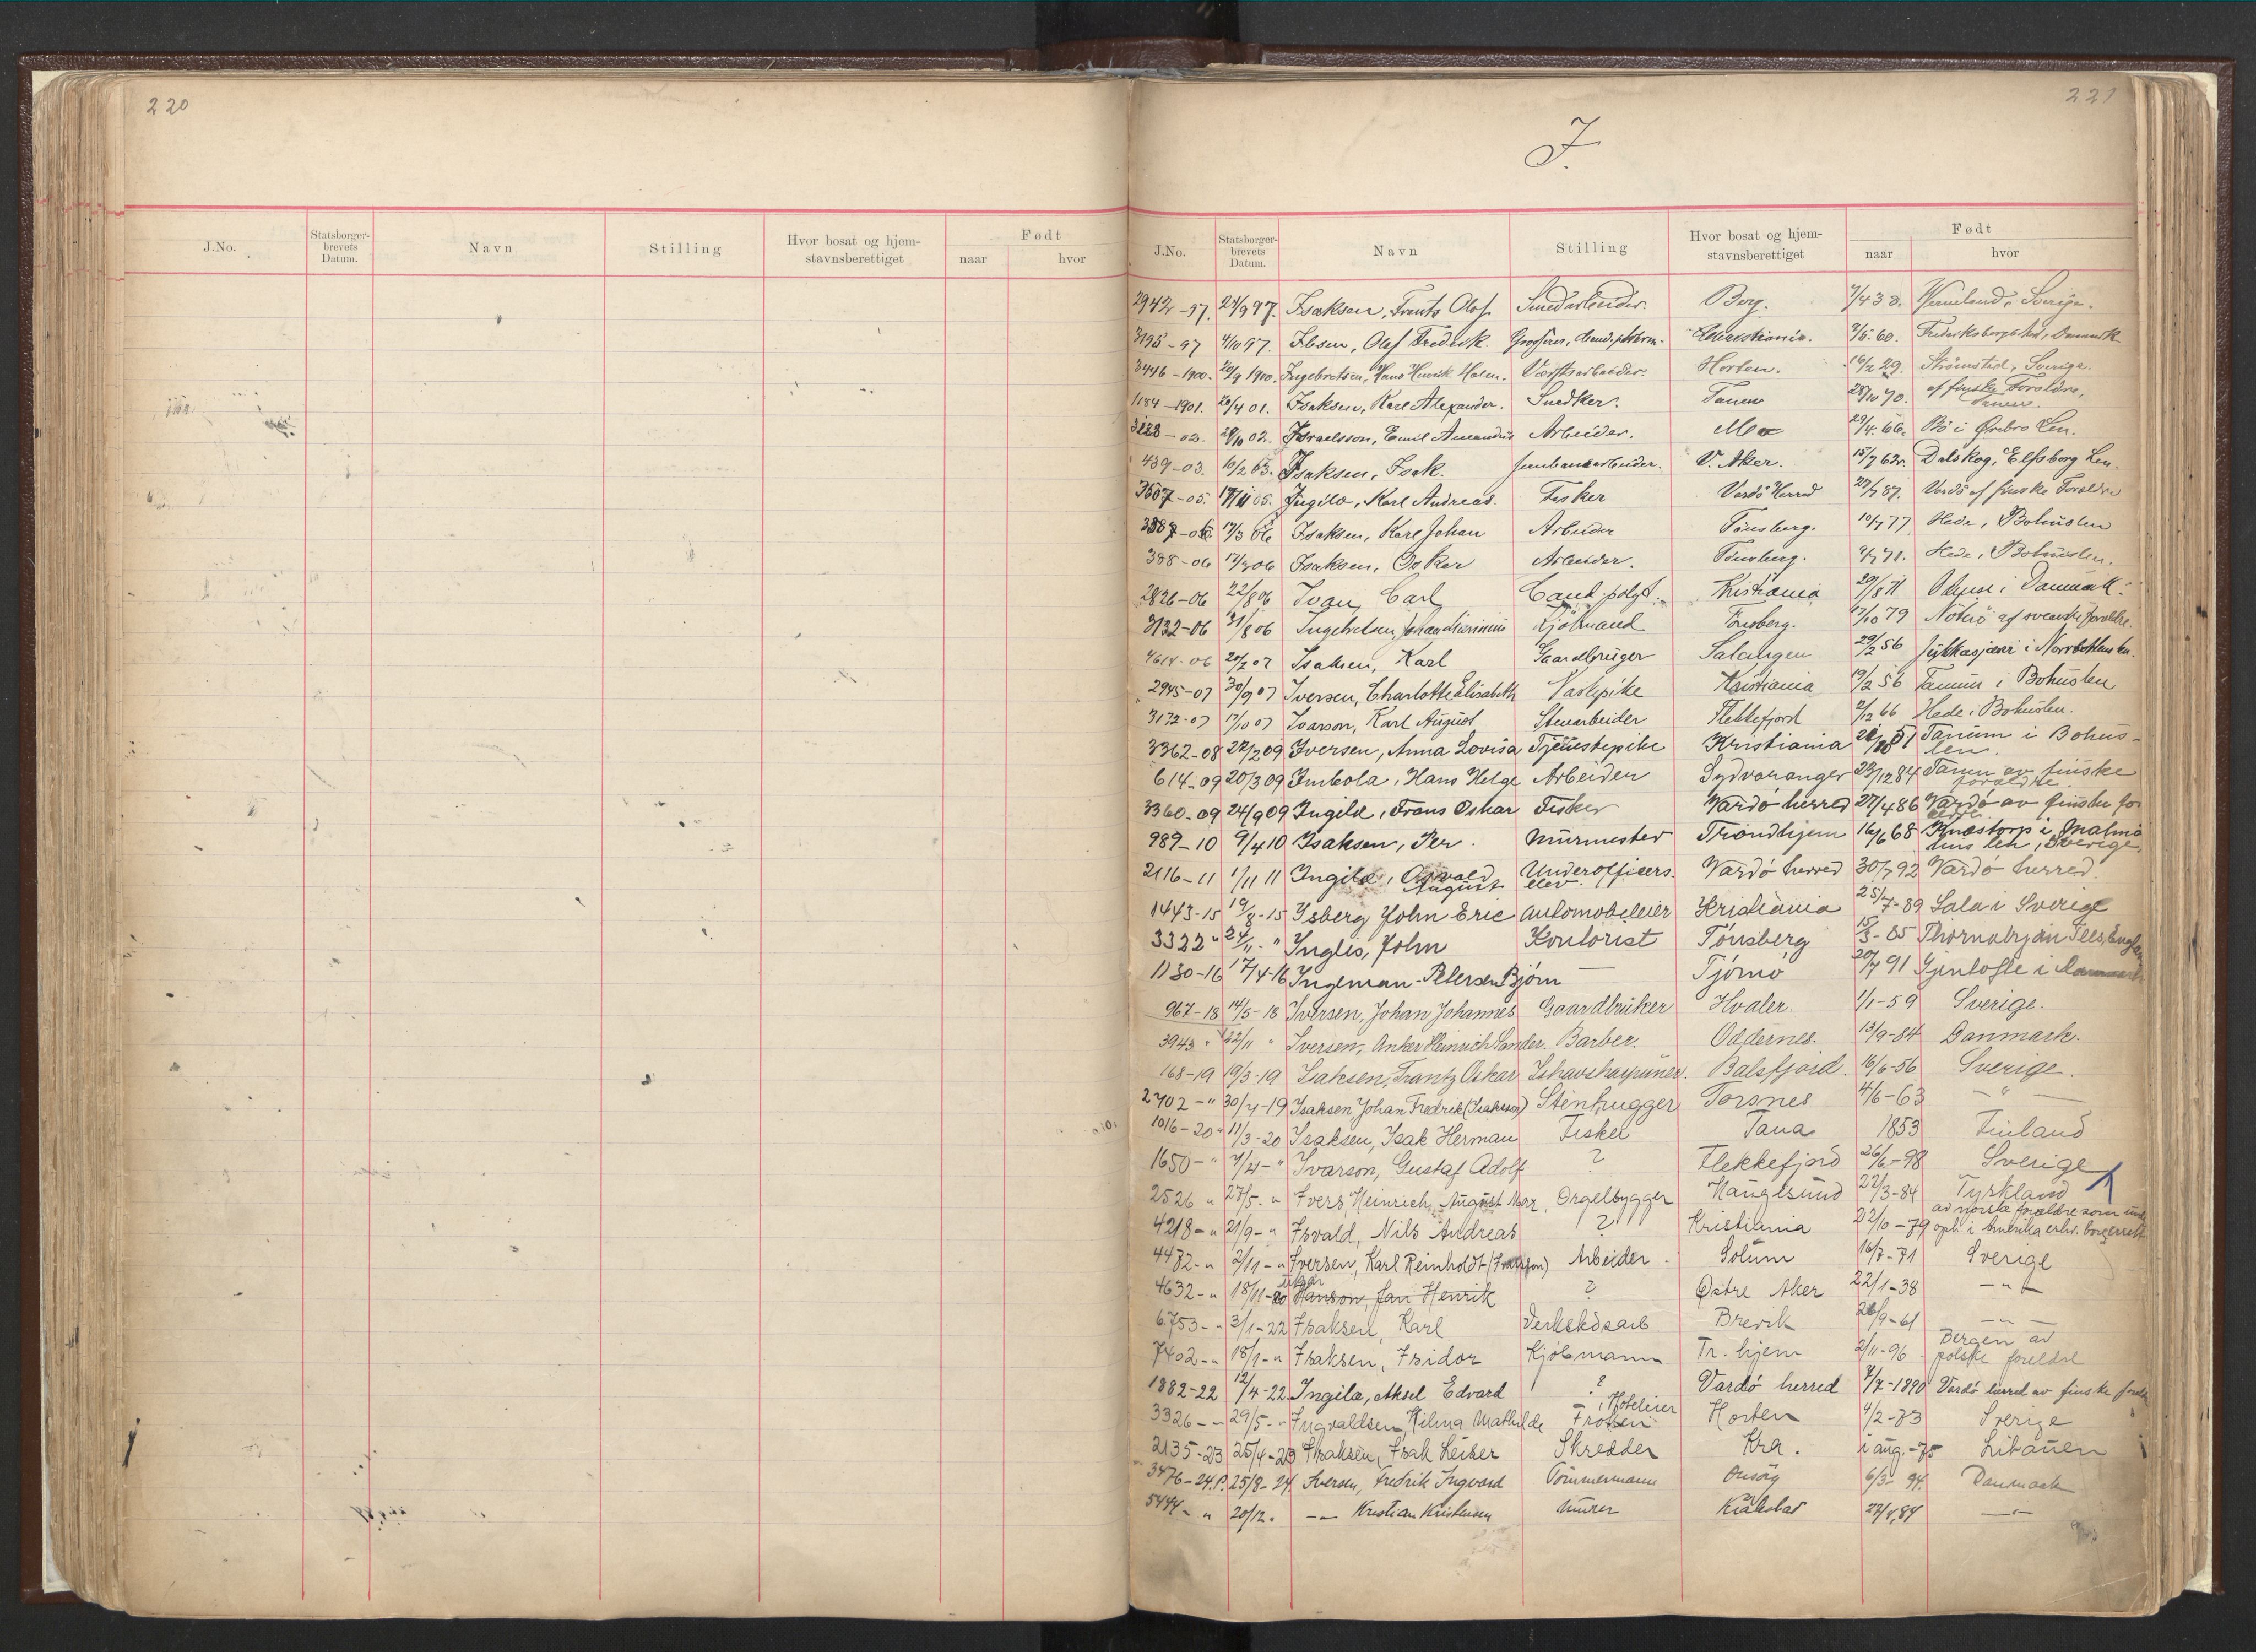 220
J.No.
Statsborger-
brevets
Datum.
Navn
Stilling
Hvor bosat og hjem-
stavnsberettiget
Født
naar
hvor
221
I.
J.No.
Statsborger-
brevets
Datum.
Navn
Stilling
Hvor bosat og hjem-
stavnsberettiget
Født
naar
hvor
2942-97. 24/9 97. Isaksen, Frants Olof Smedarbeider. Berg. Vermeland, Sverige.
3195-97 4/10 97. Ibsen, Olef Fredrik. Grosserer, Christiania. 60. Frederiksborg Danmark
3446-1900. 20/9 1900. Ingebretsen, Hans Henrik Holm. Værftsarbeider. Horten. 16/2 29. Strømstad, Sverige.
1184-1901. 20/4 01. Isaksen, Karl Alexander. Snedker. Tanen 28/10 70. af finske Forældre, Tanen.
3228-02. 28/10 02. Israelsson, Emil Amandus Arbeider. Moss 29/4. 66. Bö i Ørebro Len.
439-03. 10/2 03. Isaksen, Isak. Jernbanearbeider. V. Aker. 15/7 62. Dalskog, Elfsborg Len.
3607-05. 17/11 05. Ingilæ, Karl Andreas. Fisker Vardö Herred 27/7 87. Vardö af finske Forældre
387-06 17/3 06 Isaksen, Karl Johan Arbeider Tönsberg. 10/7 77 Hede, Bohuslen
388-06 17/3 06 Isaksen, Oskar Arbeider. Tönsberg. 9/7 71. Hede, Bohuslen.
2826-06 22/8 06 Ivan, Carl Cand. polyt. Kristiania 29/8 71 Odense i Danmark.
3132-06 31/8 06 Ingebretsen, Johan Marinius Kjöbmand Tönsberg. 17/10 79 Nöterö af svenske forældre.
4614-06 20/2 07 Isaksen, Karl Gaardbruger Salangen 29/2 56 Jukkasjærvi i Norrbottens len.
2945-07 30/9 07 Iversen, Charlotte Elisabeth Vaskepike Kristiania 19/2 56 Tanum i Bohuslen
3172-07 17/10 07 Ivarson, Karl August Stenarbeider Flekkefjord 2/12 66 Hede i Bohuslen.
3362-08 22/2 09 Iversen, Anna Lovisa Tjenestepike Kristiania 51 Tanum i Bohus-
len.
614-09 20/3 09 Imbola, Hans Helge Arbeider Sydvaranger 23/12 84 Tanen av finske
forældre
3360-09 24/9 09 Ingilæ, Frans Oskar Fisker Vardö herred 27/4 86 Vardö av finske for-
ældre
989-10 9/4 10 Isaksen, Per. Murmester Trondhjem 16/6 68 Knæstorp i Malmö
hus len, Sverige.
2116-11 1/11 11 Ingilæ, Osvald Underofficers- Vardö herred 30/7 92 Vardö herred.
August elev.
1443-15 19/8-15 Isberg John Eric Automobileier Kristiania 25/7-89 Sala i Sverige
3322 " 24/11-" Inglis, John Kontorist Tönsberg 15/3-85 Thornaby on Tees, England
1130-16 17/4-16 Ingeman-Petersen Bjørn — Tjömö 20/7 91 Gjentofte i Danmark
967-18 14/5-18 Iversen, Johan Johannes Gaardbruker Hvaler. 1/1-59 Sverige.
3943 " 22/11 " Iversen, Anker Heinrich Sander. Barber. Oddernes. 13/9-84 Danmark.
168-19 19/3-19 Isaksen, Frantz Oskar Ishavsharpuner. Balsfjord. 16/6-56 Sverige.
2702-" 30/7-19 Isaksen, Johan Fredrik (Isaksson) Stenhugger Torsnes 4/6-63 — " —
1016-20" 11/3-20 Isaksen, Isak Herman Fisker Tana 1853 Finland
1650-" 7/4-" Ivarson, Gustaf Adolf ? Flekkefjord 26/6-98 Sverige
2526 " 27/5. " Ivers, Heinrich, August Max, Orgelbygger Haugesund 22/3-84 Tyskland
4218-" 21/9-" Isvald, Nils Andreas ? Kristiania 22/10-79 av norske forældre som under
oph. i Amerika erhv. borgerrett
4472-" 2/11-" Iversen, Karl Reinholdt Arbeider. Solum 16/7-71 Sverige
4632-" 18/11-20 Hanson, Jan Henrik ? Østre Aker 22/1-38 — " —
6753-" 3/1-22 Isaksen, Karl Verkskdsarb Brevik 26/9-61 — " —
7402-" 18/1-" Isaksen, Isidor Kjöbmann Tr.hjem 2/11-96 Bergen av
polske foreldre
1882-22 12/4-22 Ingilæ, Aksel Edvard ? Vardö herred 7/7-1890 Vardö herred av finske foreldre
3326-" 29/5-" Ingvaldsen, Hilma Mathilde Frøken, Hoteleier Horten 4/2-73 Sverige
2135-23 25/4-23 Isaksen, Isak Leiser Skredder Kra. i aug.-75 Litauen
3476-24.P. 25/8-24. Iversen, Fredrik Ingvard Tömmermann Onsöy 6/3-94. Danmark
5444-" 20/12. -"- Kristian Kristensen Murer Kråkstad 27/4, 84 -"-